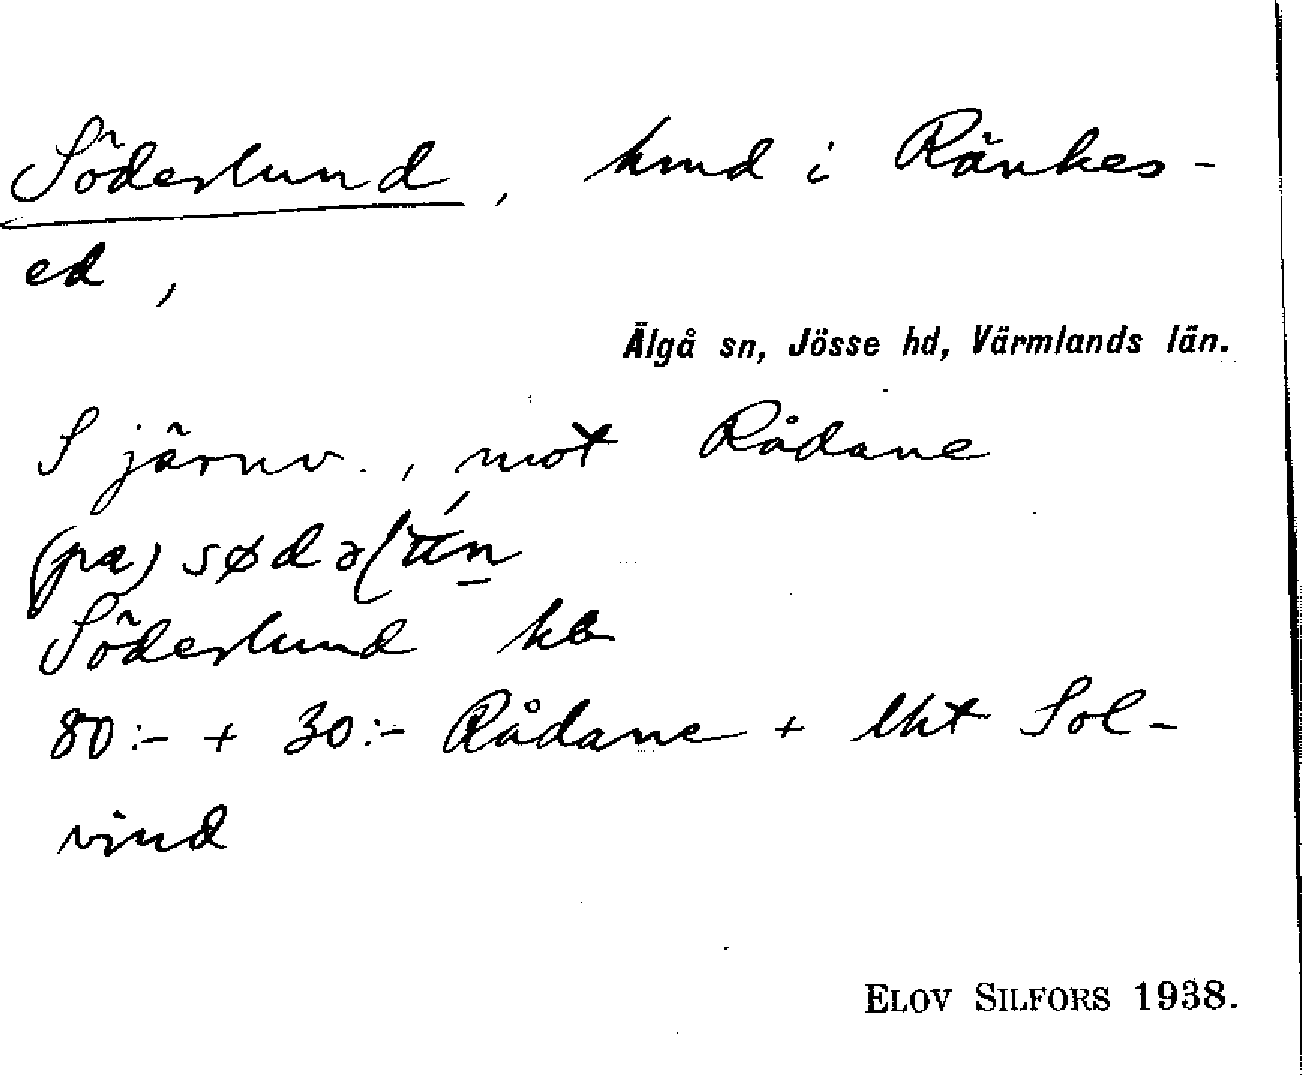 Söderlund, hmd i Ränkes-
ed,
Älgå sn, Jösse hd, Värmlands län.
S järnv., mot Rådane
(pa)
Söderlund
80:- + 30:- Rådane + lht Sol-
vind
ELOV SILFORS 1938.